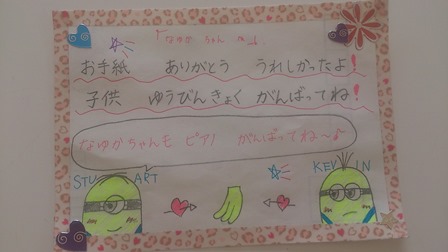 「なゆか ちゃん へ」
お手紙 ありがとう うれしかったよ!
子供 ゆうびんきょく がんばってね!
なゆかちゃんも ピアノ がんばってね〜♪
STUART
KEVIN